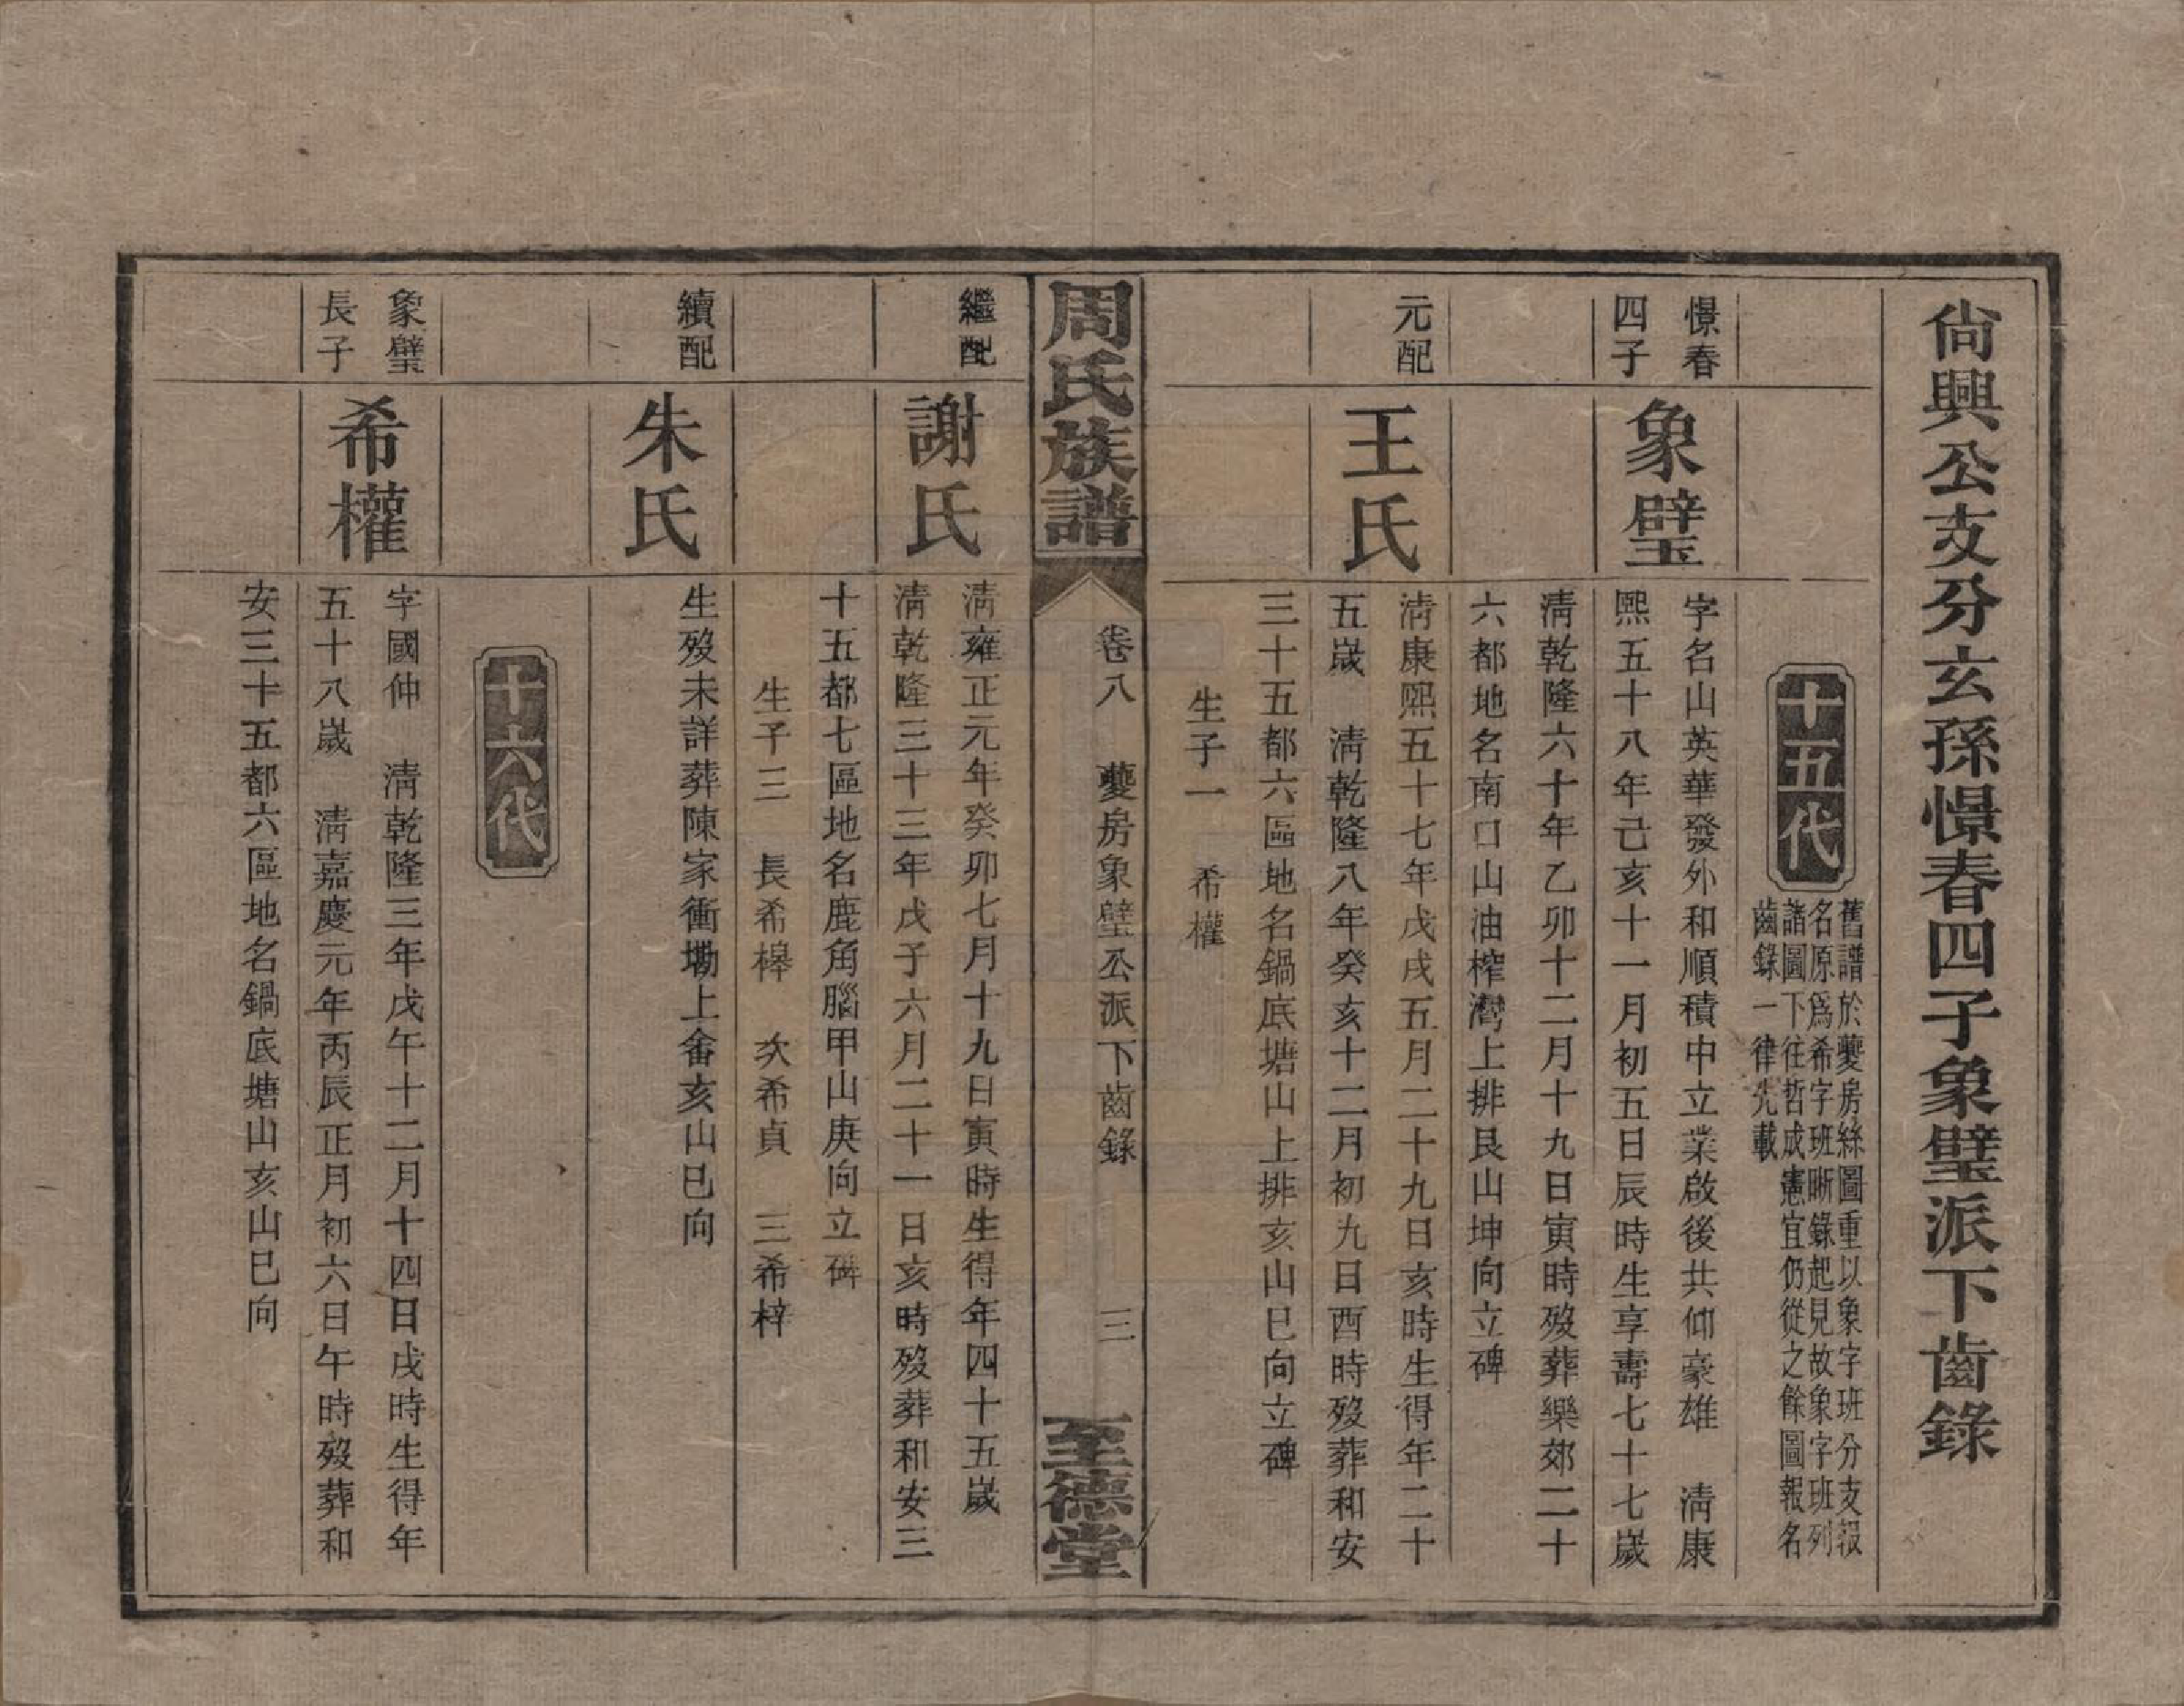 尙興公支分玄孫憬春四子象璧派下齒錄
十五代
舊譜於夔房絲圖重以象字班分支報
名原爲希字班晰錄起見故象字班列
諸圖下往哲成憲宜仍從之餘圖報名
齒錄一律先載
憬春
四子
象璧
字名山英華發外和順積中立業啟後共仰豪雄　淸康
熙五十八年己亥十一月初五日辰時生享壽七十七歲
淸乾隆六十年乙卯十二月十九日寅時歿葬樂郊二十
六都地名南口山油榨灣上排艮山坤向立碑
元配
王氏
淸康熙五十七年戊戌五月二十九日亥時生得年二十
五歲　淸乾隆八年癸亥十二月初九日酉時歿葬和安
三十五都六區地名鍋底塘山上排亥山巳向立碑
生子一　希權
周氏族譜
卷八　夔房象璧公派下齒錄　三
至德堂
繼配
謝氏
淸雍正元年癸卯七月十九日寅時生得年四十五歲
淸乾隆三十三年戊子六月二十一日亥時歿葬和安三
十五都七區地名鹿角腦甲山庚向立碑
生子三　長希槔　次希貞　三希梓
續配
朱氏
生歿未詳葬陳家衝坳上畬亥山巳向
十六代
象璧
長子
希權
字國仲　淸乾隆三年戊午十二月十四日戌時生得年
五十八歲　淸嘉慶元年丙辰正月初六日午時歿葬和
安三十五都六區地名鍋底塘山亥山巳向